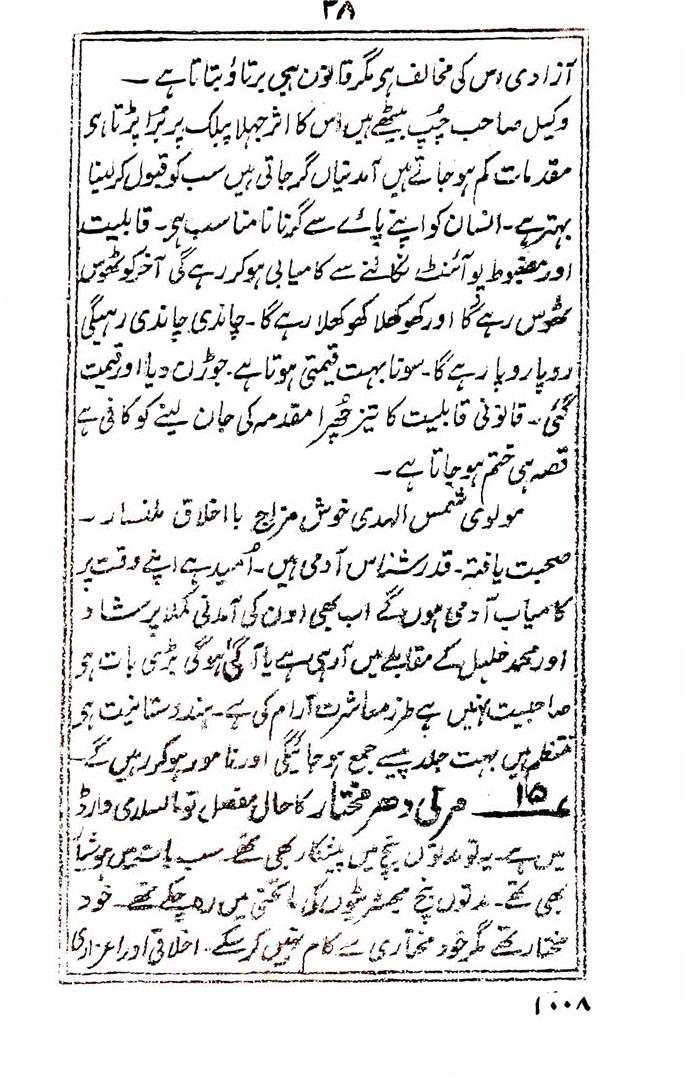 ۳۸
آزادی اس کی مخالف ہو مگر قانون ہی برتاؤ بتاتا ہے ۔
وکیل صاحب چُپ بیٹھے ہیں اس کا اثر جہلا پبلک پر بُرا پڑتا ہو
مقدمات کم ہو جاتے ہیں آمدنیاں گر جاتی ہیں سب کو قبول کر لینا
بہتر ہے ۔ انسان کو اپنے پائے سے گرنا نا مناسب ہو ۔ قابلیت
اور مضبوط پوائنٹ نکالنے سے کامیابی ہو کر رہے گی آخر کو ٹھوس
ٹھوس رہے گا اور کھوکھلا کھوکھلا رہے گا ۔ چاندی چاندی رہیگی
روپا روپا رہے گا ۔ سونا بہت قیمتی ہوتا ہے ۔ جوڑن دیا اور قیمت
گئی ۔ قانونی قابلیت کا تیز چُھرا مقدمہ کی جان لینے کو کافی ہے
قصہ ہی ختم ہو جاتا ہے ۔
مولوی شمس الہدی خوش مزاج با اخلاق ملنسار ۔
صحبت یافتہ ۔ قدر شناس آدمی ہیں ۔ اُمید ہے اپنے وقت پر
کامیاب آدمی ہوں گے اب بھی اون کی آمدنی کملا پرشاد
اور محمد خلیل کے مقابلے میں آ رہی ہے یا آ گئی ہوگی بڑی بات ہو
صاحبیت نہیں ہے طرز معاشرت آرام کی ہے ۔ ہندوستانیت ہو
منتظم ہیں بہت جلد پیسے جمع ہو جائیگی اور نامور ہو کر رہیں گے ۔
۱۵ مرلی دھر مختار کا حال مفصل تو السلامی وارڈ
میں ہے ۔ یہ تو مدتوں بنچ میں پیشکار بھی تھے سب بات میں ہوشیار
بھی تھے ۔ مدتوں بنچ مجسٹریٹوں کی ماتحتی میں رہ چکے تھے ۔ خود
مختار تھے مگر خود مختاری سے کام نہیں کر سکے ۔ اخلاقی اور اعزازی
۱۰۰۸